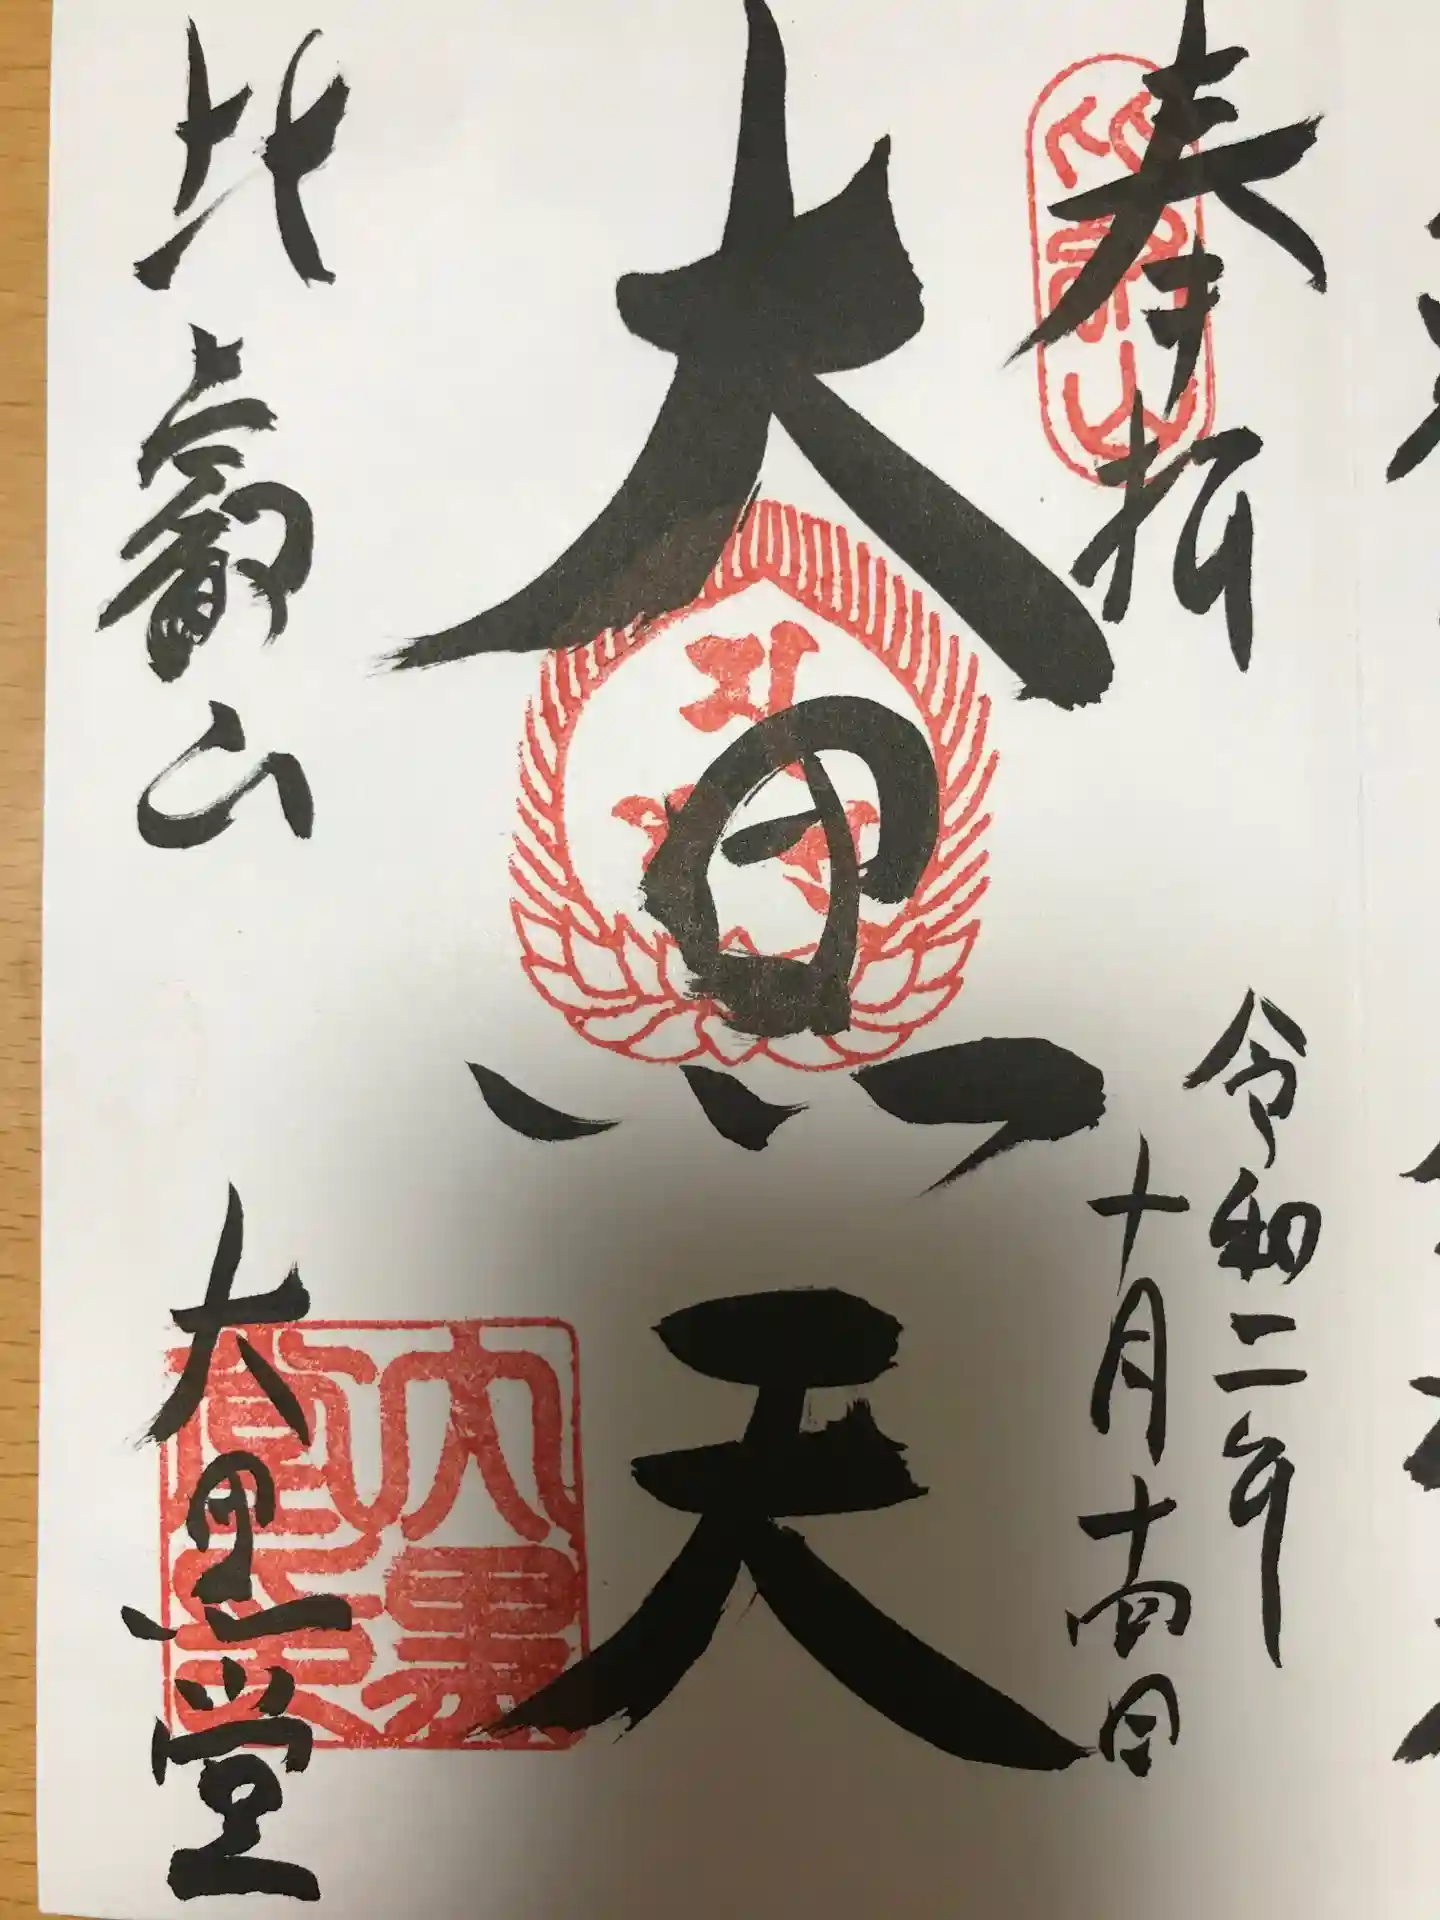 奉拝
令和二年
十月十四日
大黒天
比叡山
大黒堂
比叡山
大黒堂印